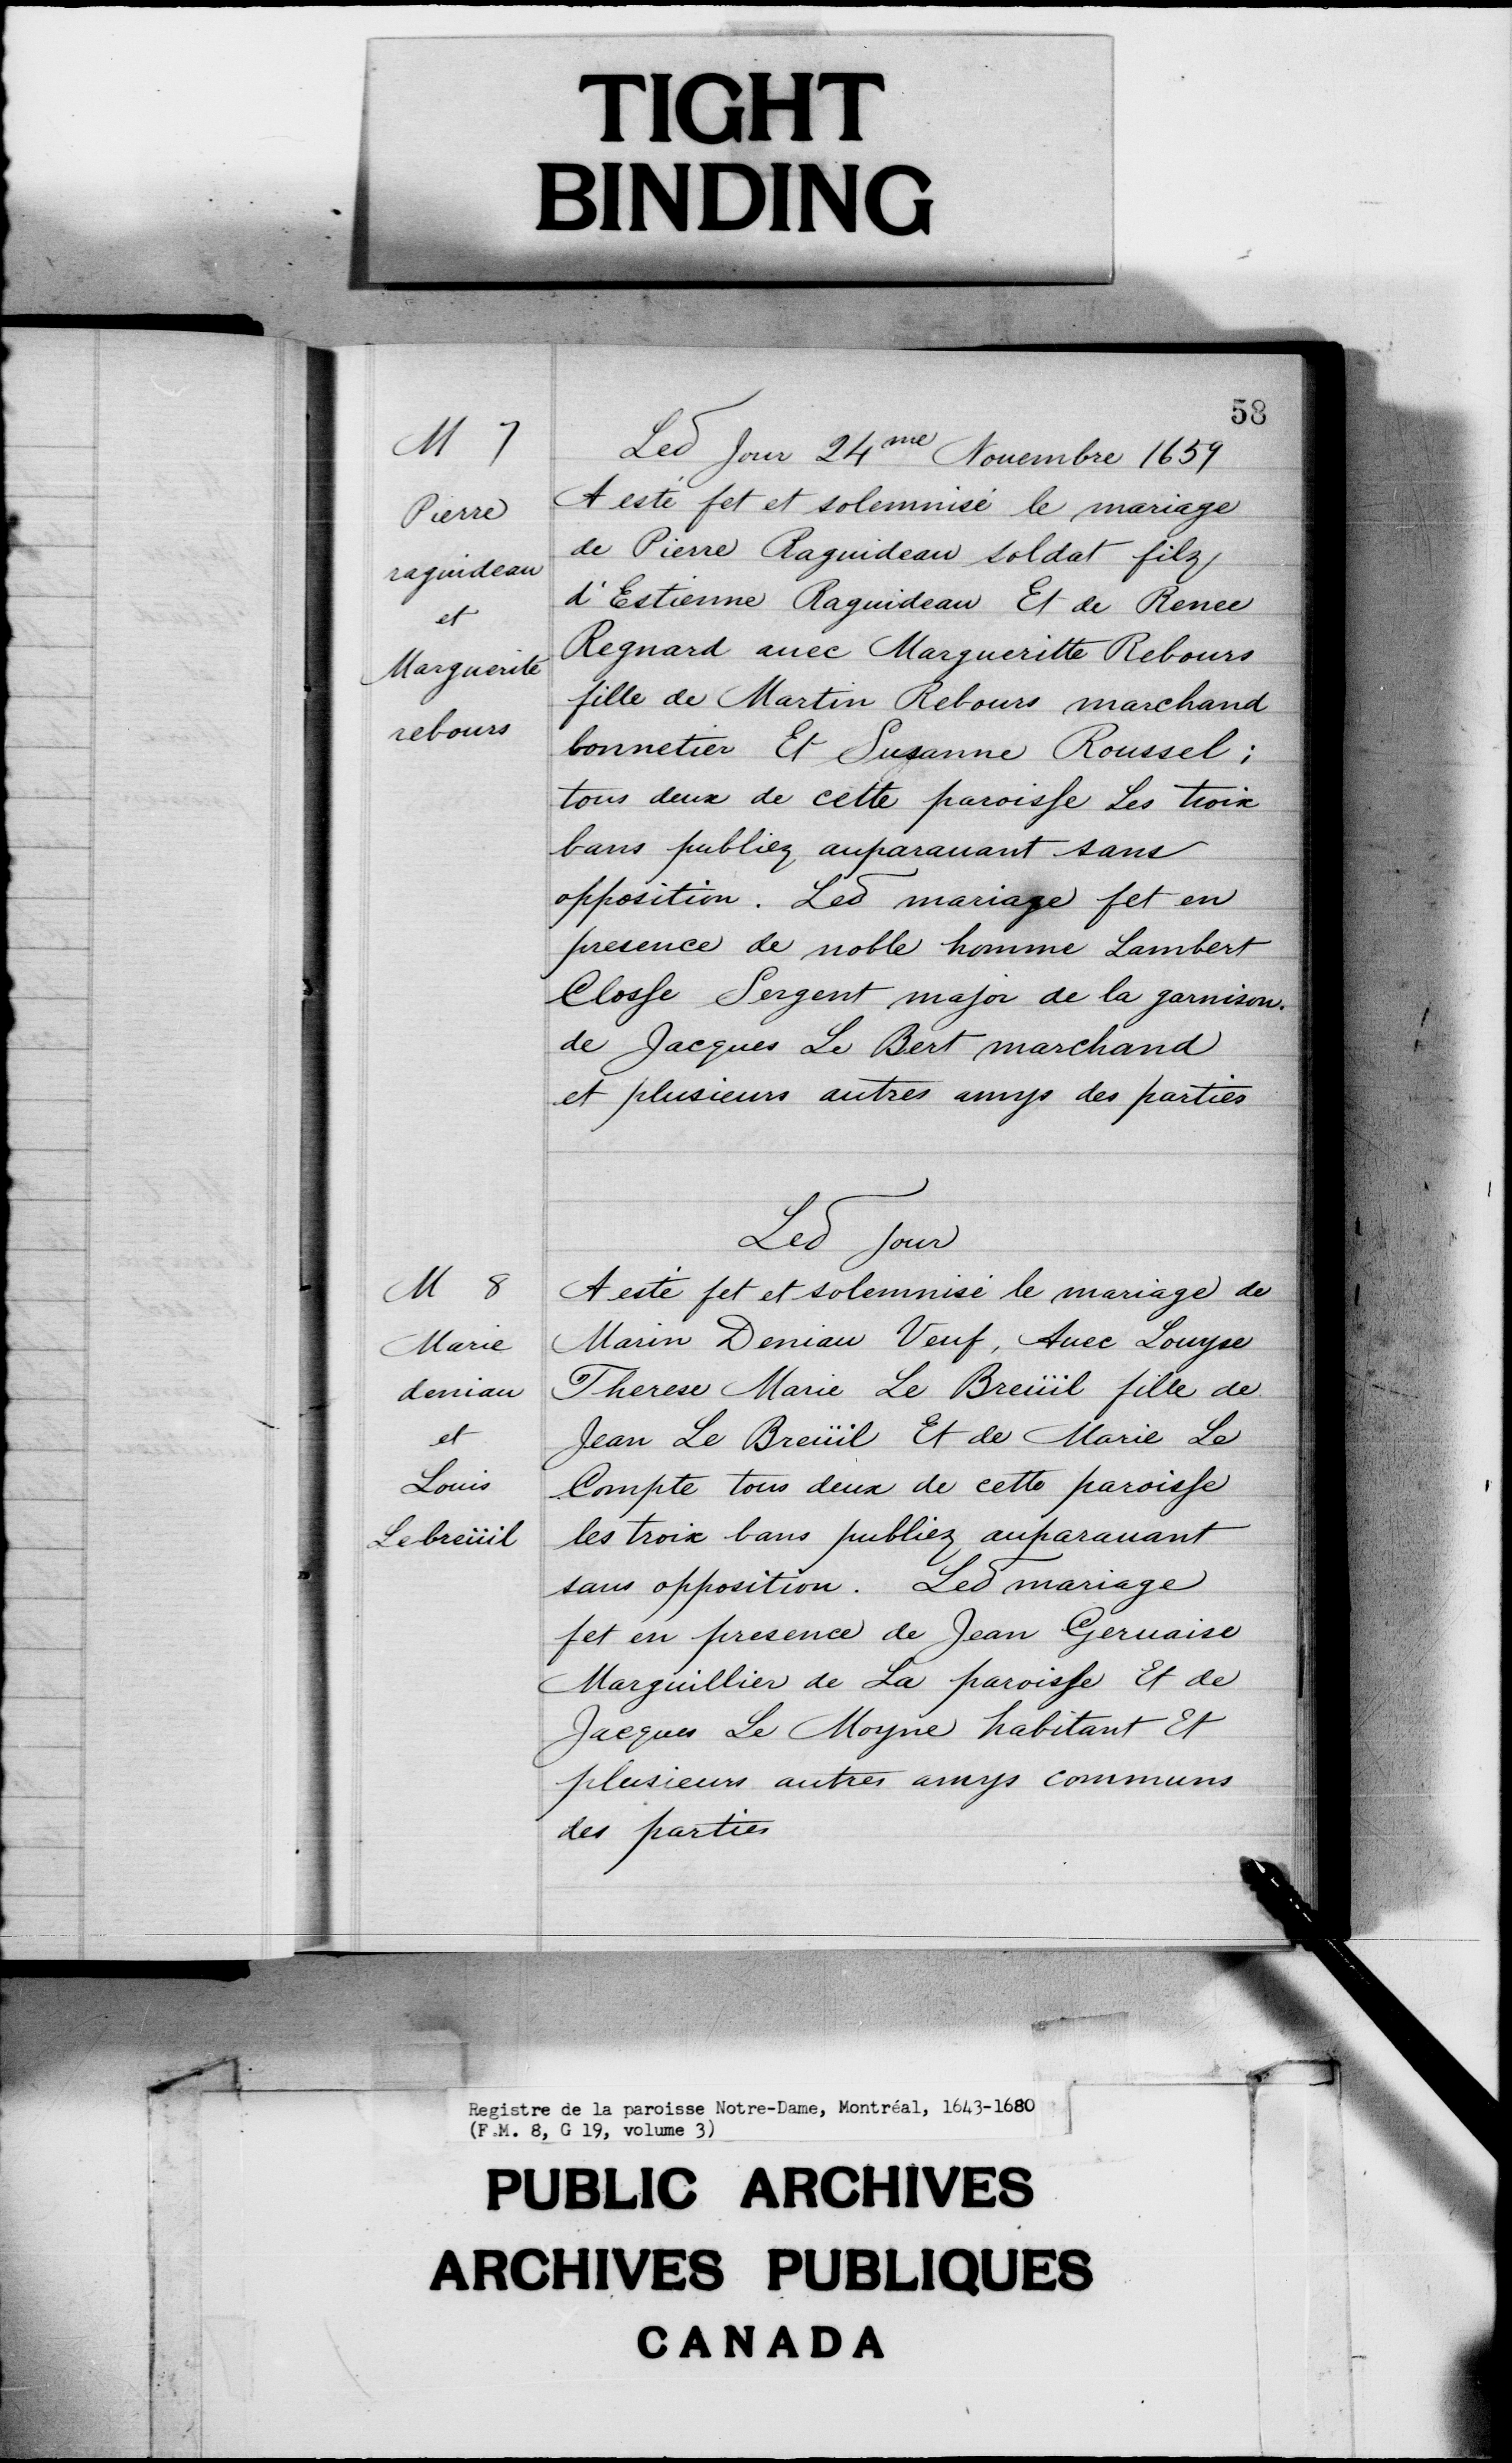 TIGHT
BINDING
58
M 7
Pierre
raguideau
et
Marguerite
rebours
Led Jour 24me Nouembre 1659
A esté fet et solemnisé le mariage
de Pierre Raguideau soldat filz
d'Estienne Raguideau Et de Renee
Regnard auec Margueritte Rebours
fille de Martin Rebours marchand
bonnetier Et Suzanne Roussel ;
tous deux de cette paroisse Les troix
bans publiez auparauant sans
opposition. Led mariage fet en
presence de noble homme Lambert
Closse Sergent major de la garnison.
de Jacques Le Bert marchand
et plusieurs autres amys des parties
Led Jour
M 8
Marie
deniau
et
Louis
Lebreüil
A esté fet et solemnisé le mariage de
Marin Deniau Veuf, Auec Louyse
Therese Marie Le Breüil fille de
Jean Le Breüil Et de Marie Le
Compte tous deux de cette paroisse
les troix bans publiez auparauant
sans opposition. Led mariage
fet en presence de Jean Geruaise
Marguillier de La paroisse Et de
Jacques Le Moyne habitant Et
plusieurs autres amys communs
des parties
Registre de la paroisse Notre-Dame, Montréal, 1643-1680
(F.M. 8, G 19, volume 3)
PUBLIC ARCHIVES
ARCHIVES PUBLIQUES
CANADA